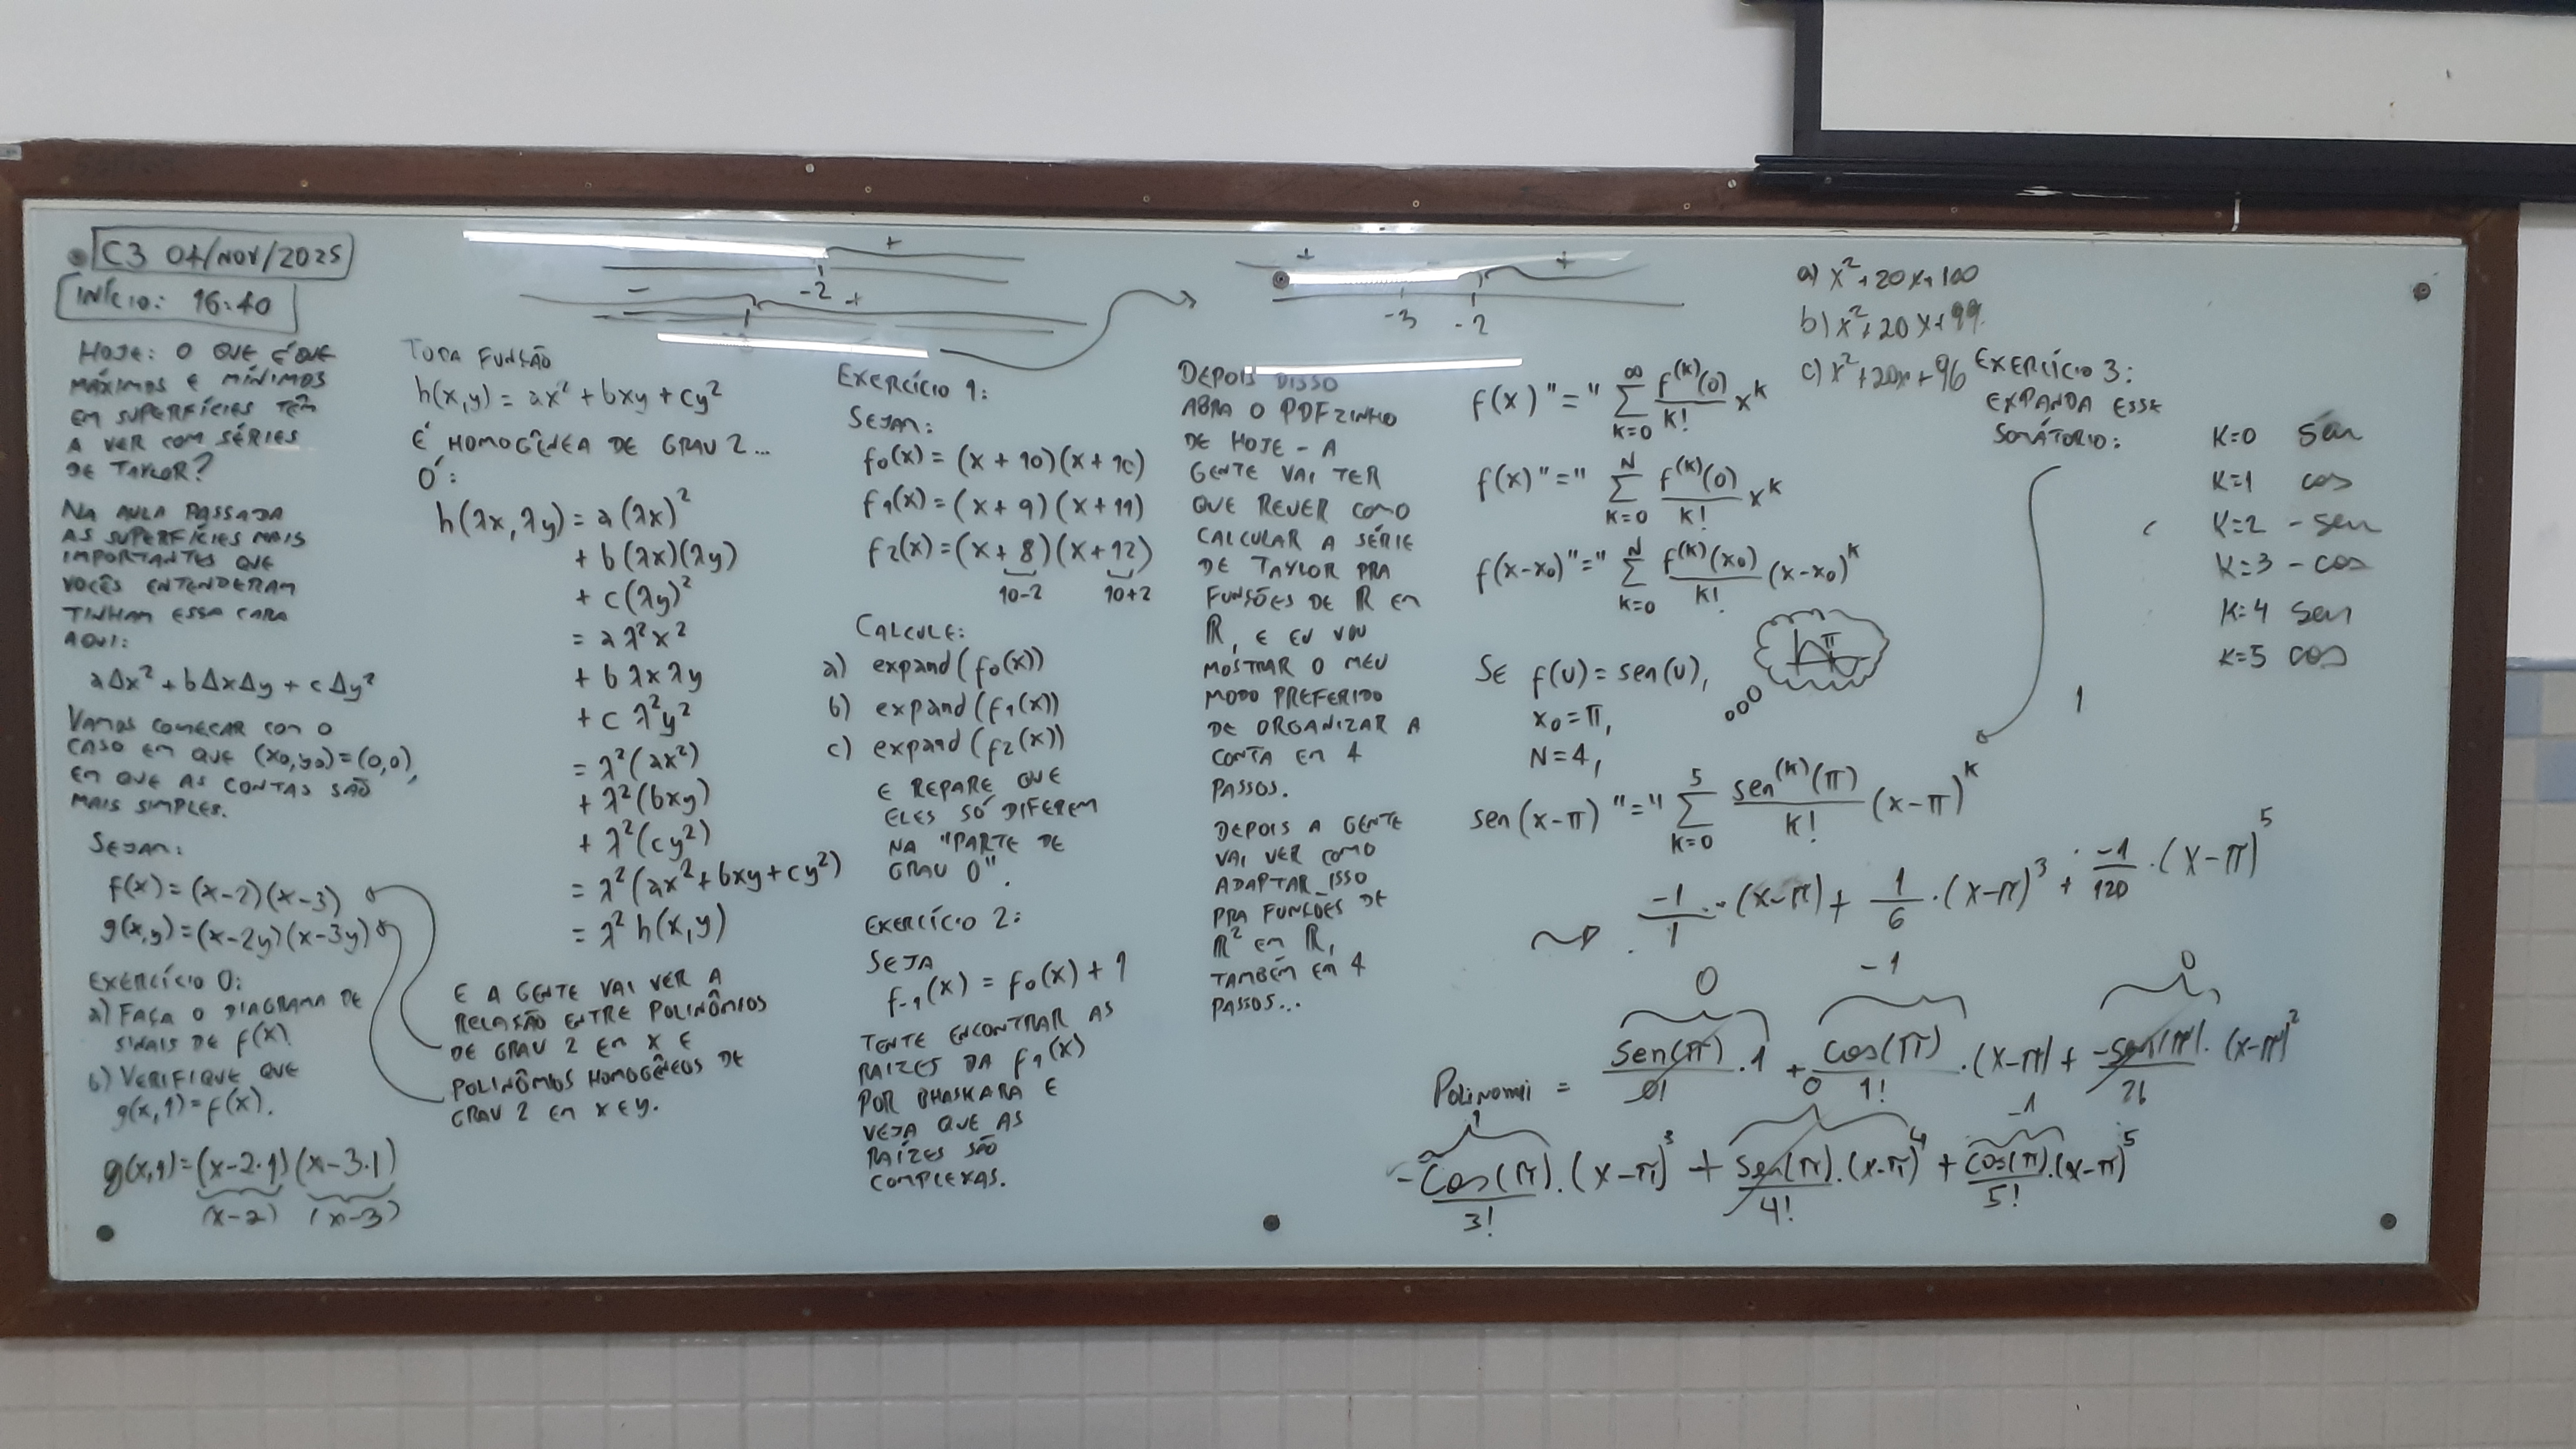 C3 04/NOV/2025
INÍCIO: 16:40
HOJE: O QUE É QUE
MÁXIMOS E MÍNIMOS
EM SUPERFÍCIES TÊM
A VER COM SÉRIES
DE TAYLOR?
NA AULA PASSADA
AS SUPERFÍCIES MAIS
IMPORTANTES QUE
VOCÊS ENTENDERAM
TINHAM ESSA CARA
AQUI:
aΔx² + bΔxΔy + cΔy²
VAMOS COMEÇAR COM O
CASO EM QUE (x₀,y₀)=(0,0),
EM QUE AS CONTAS SÃO
MAIS SIMPLES.
SEJAM:
f(x) = (x-2)(x-3)
g(x,y) = (x-2y)(x-3y)
EXERCÍCIO 0:
a) FAÇA O DIAGRAMA DE
SINAIS DE f(x).
b) VERIFIQUE QUE
g(x,1)=f(x).
g(x,1)=(x-2·1)(x-3·1)
(x-2) (x-3)
+
-2
- +
TODA FUNÇÃO
h(x,y) = ax² + bxy + cy²
É HOMOGÊNEA DE GRAU 2...
Ó:
h(λx,λy) = a(λx)²
+ b(λx)(λy)
+ c(λy)²
= aλ²x²
+ bλxλy
+ cλ²y²
= λ²(ax²)
+ λ²(bxy)
+ λ²(cy²)
= λ²(ax²+bxy+cy²)
= λ²h(x,y)
E A GENTE VAI VER A
RELAÇÃO ENTRE POLINÔMIOS
DE GRAU 2 EM X E
POLINÔMIOS HOMOGÊNEOS DE
GRAU 2 EM X E y.
EXERCÍCIO 1:
SEJAM:
f₀(x) = (x+10)(x+10)
f₁(x) = (x+9)(x+11)
f₂(x) = (x+8)(x+12)
10-2 10+2
CALCULE:
a) expand(f₀(x))
b) expand(f₁(x))
c) expand(f₂(x))
E REPARE QUE
ELES SÓ DIFEREM
NA "PARTE DE
GRAU 0".
EXERCÍCIO 2:
SEJA
f₋₁(x) = f₀(x) + 1
TENTE ENCONTRAR AS
RAIZES DA f₁(x)
POR BHASKARA E
VEJA QUE AS
RAÍZES SÃO
COMPLEXAS.
+ +
-3 -2
DEPOIS DISSO
ABRA O PDFZINHO
DE HOJE - A
GENTE VAI TER
QUE REVER COMO
CALCULAR A SÉRIE
DE TAYLOR PRA
FUNÇÕES DE ℝ EM
ℝ, E EU VOU
MOSTRAR O MEU
MODO PREFERIDO
DE ORGANIZAR A
CONTA EM 4
PASSOS.
DEPOIS A GENTE
VAI VER COMO
ADAPTAR ISSO
PRA FUNÇÕES DE
ℝ² EM ℝ,
TAMBÉM EM 4
PASSOS...
f(x) "=" ∑_{k=0}^{∞} f^{(k)}(0)/k! x^k
f(x) "=" ∑_{k=0}^{N} f^{(k)}(0)/k! x^k
f(x-x₀) "=" ∑_{k=0}^{N} f^{(k)}(x₀)/k! (x-x₀)^k
SE f(u) = sen(u),
x₀ = π,
N = 4,
π
sen(x-π) "=" ∑_{k=0}^{5} sen^{(k)}(π)/k! (x-π)^k
-1/1 · (x-π) + 1/6 · (x-π)³ + -1/120 · (x-π)⁵
0 -1 0
Polinomi = sen(π)/0! · 1 + cos(π)/1! · (x-π) + -sen(π)/2! · (x-π)²
1 0 -1
-cos(π)/3! · (x-π)³ + sen(π)/4! · (x-π)⁴ + cos(π)/5! · (x-π)⁵
a) x²+20x+100
b) x²+20x+99
c) x²+20x+96
EXERCÍCIO 3:
EXPANDA ESSE
SOMÁTORIO:
K=0 sen
K=1 cos
K=2 -sen
K=3 -cos
K=4 sen
K=5 cos
1